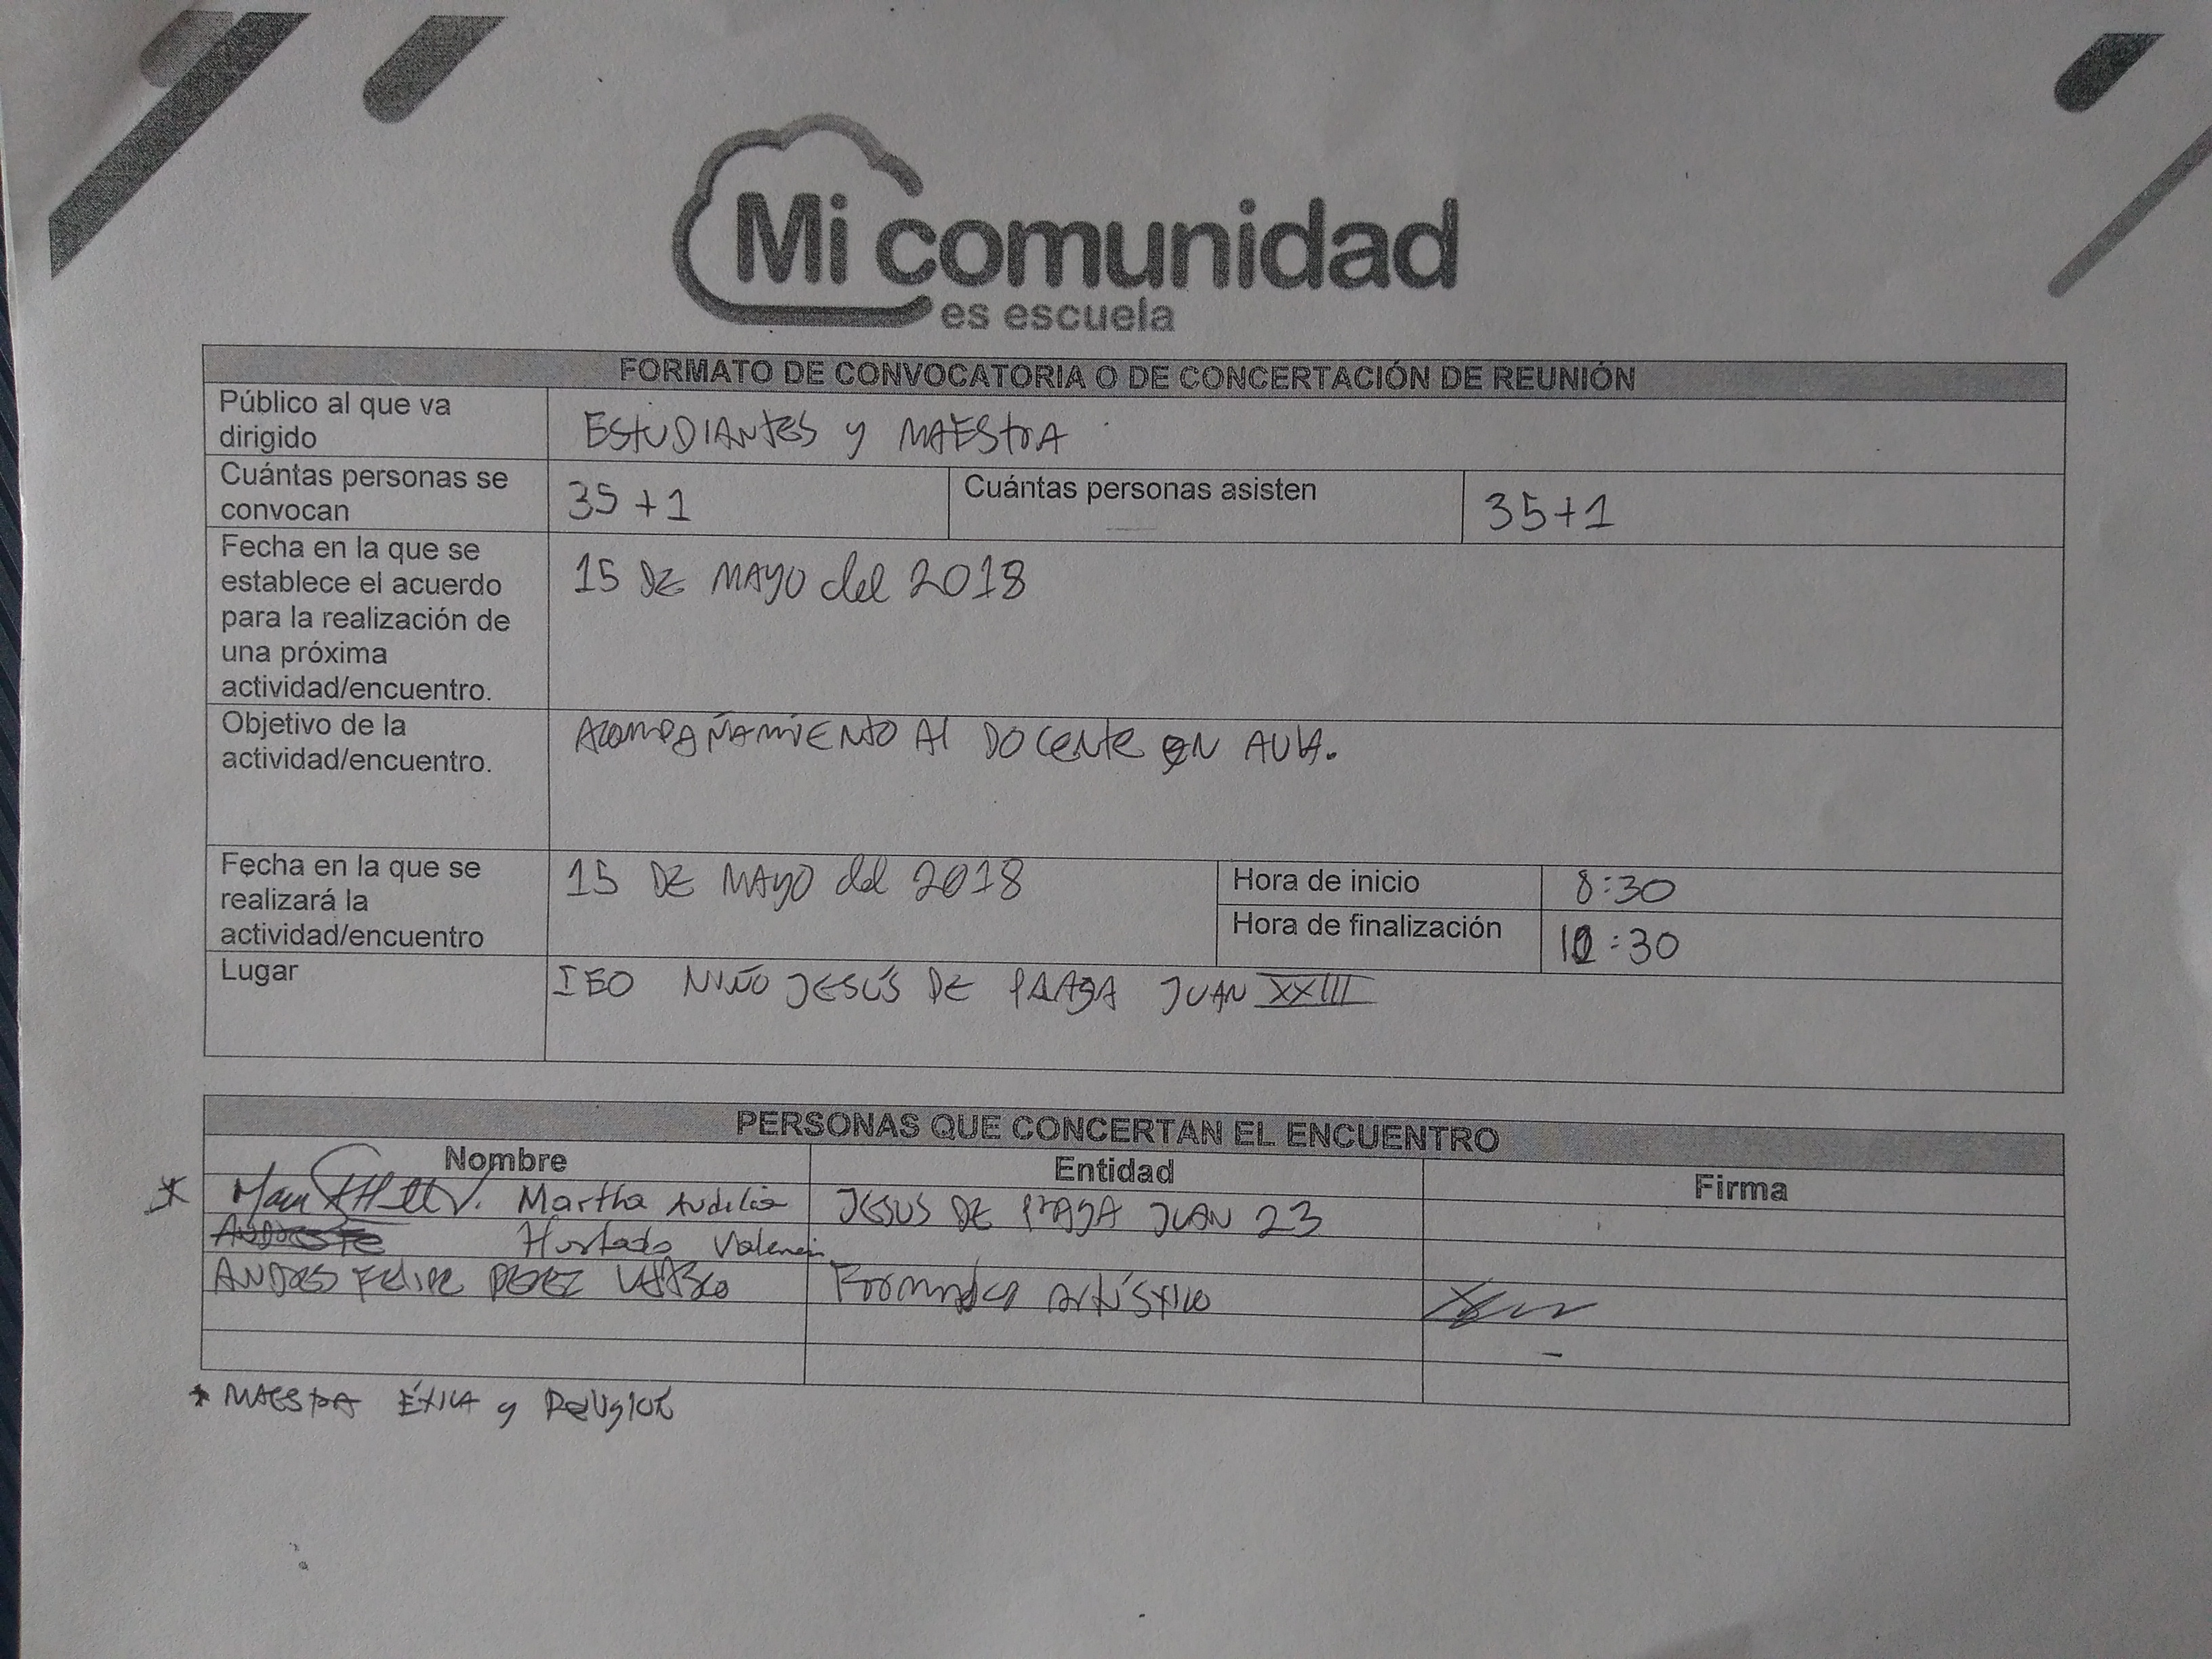 Mi comunidad
es escuela
FORMATO DE CONVOCATORIA O DE CONCERTACIÓN DE REUNIÓN
Público al que va
dirigido
ESTUDIANTES y MAESTRA
Cuántas personas se
convocan
35+1
Cuántas personas asisten
35+1
Fecha en la que se
establece el acuerdo
para la realización de
una próxima
actividad/encuentro.
15 DE MAYO del 2018
Objetivo de la
actividad/encuentro.
ACOMPAÑAMIENTO Al DOCENTE EN AULA.
Fecha en la que se
realizará la
actividad/encuentro
15 DE MAYO del 2018
Hora de inicio
8:30
Hora de finalización
:30
Lugar
IEO NIÑO JESÚS DE PRAGA JUAN XXIII
PERSONAS QUE CONCERTAN EL ENCUENTRO
Nombre
Entidad
Firma
* Martha Audilia
Hurtado Valencia
JESUS DE PRAGA JUAN 23
ANDRES FELIPE PEREZ VELASCO
Formador Artístico
* MAESTRA ÉTICA y Religión